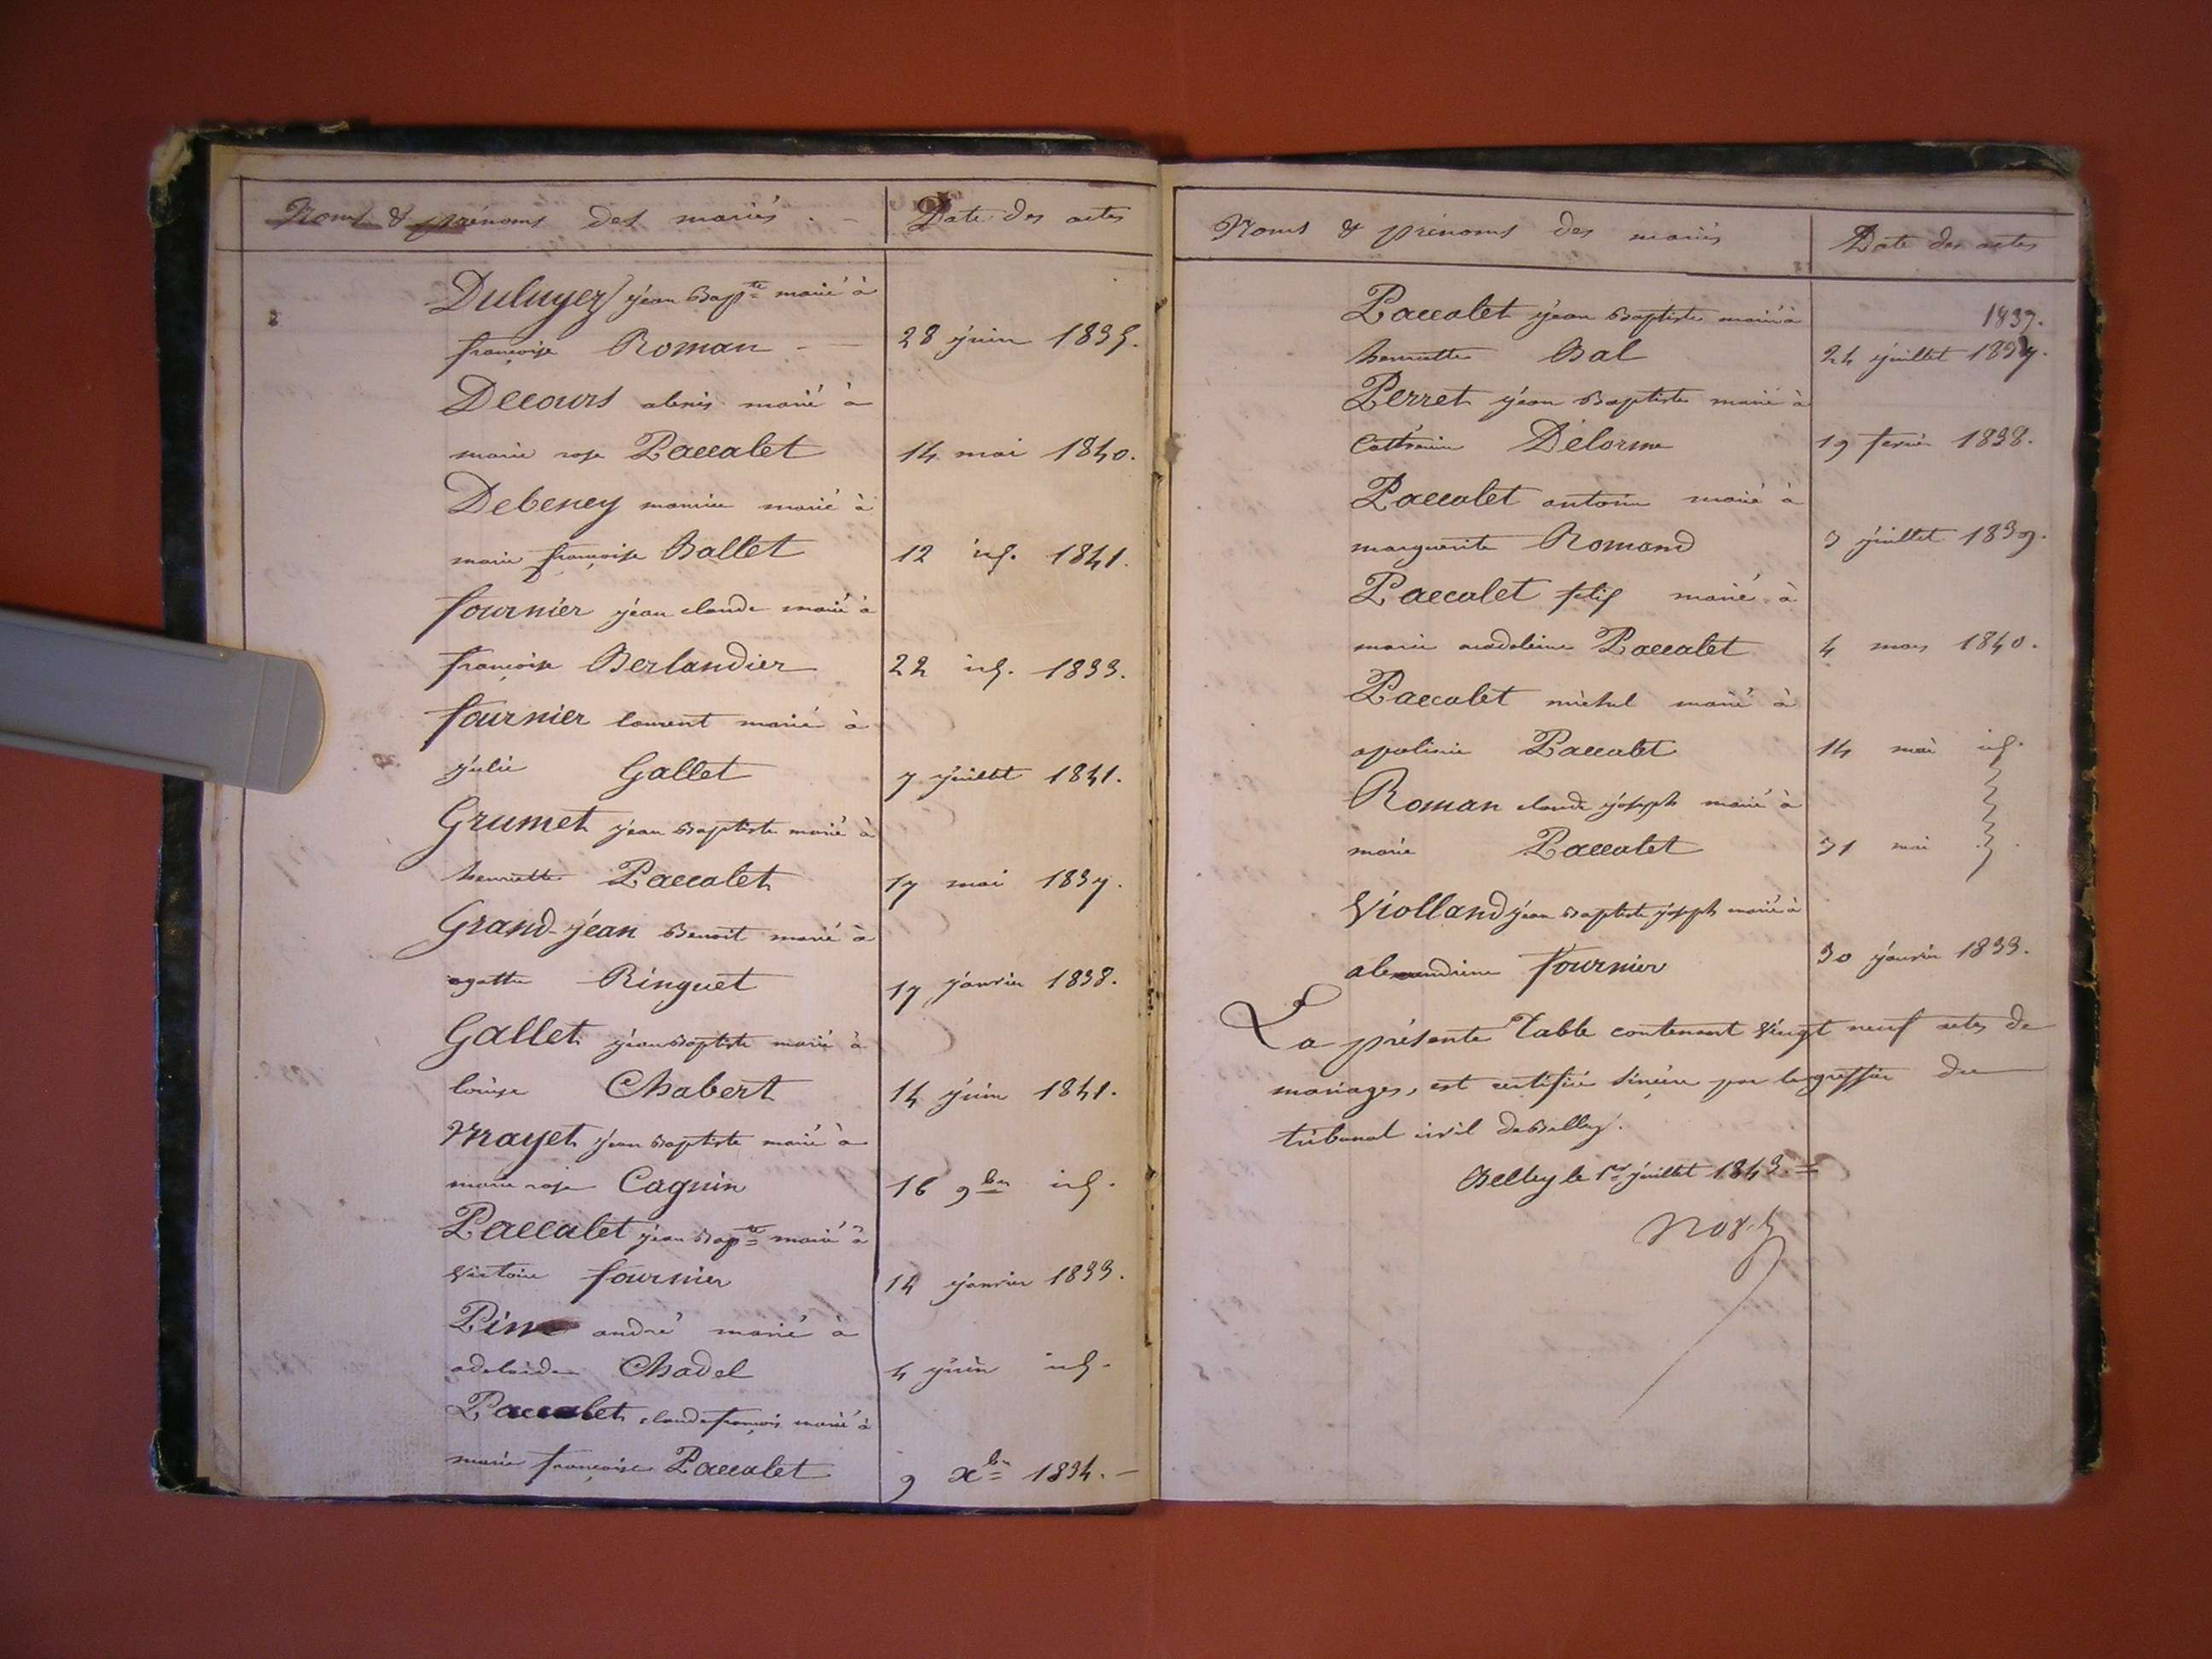 Noms & prénoms des mariés. - Date des actes
Duluyer jean Bapte marié à
françoise Roman - 28 juin 1835.
Decours alexis marié à
marie rose Paccalet 14 mai 1840.
Debeney maurice marié à
marie françoise Ballet 12 id. 1841.
fournier jean claude marié à
françoise Berlandier 22 id. 1833.
fournier laurent marié à
julie Gallet 7 juillet 1841.
Grumet jean Baptiste marié à
henriette Paccalet 17 mai 1837.
Grand-jean Benoit marié à
agathe Ringuet 17 janvier 1838.
Gallet jean Baptiste marié à
louise Chabert 14 juin 1841.
jean Baptiste marié à
marie rose Cagnin 16 9bre id.
Paccalet jean Bapte marié à
victoire fournier 14 janvier 1833.
andré marié à
adelaide Chadel 4 juin id.
Paccalet claude françois marié à
marie françoise Paccalet 9 xbre 1834. -
Noms & prénoms des mariés Date des actes
Paccalet jean Baptiste marié à 1837.
henriette Bal 24 juillet 1837.
Perret jean Baptiste marié à
Catherine Délorme 19 fevrier 1838.
Paccalet antoine marié à
marguerite Romand 3 juillet 1839.
Paccalet marié à
marie madeleine Paccalet 4 mars 1840.
Paccalet michel marié à
apolinie Paccalet 14 mai id.
Roman claude joseph marié à
marie Paccalet 31 mai
Violland jean Baptiste joseph marié à
alexandrine fournier 30 janvier 1833.
La présente Table contenant vingt neuf actes de
mariages, est certifiée sincère par le greffier du
tribunal civil de Belley.
Belley le 1er juillet 1843.